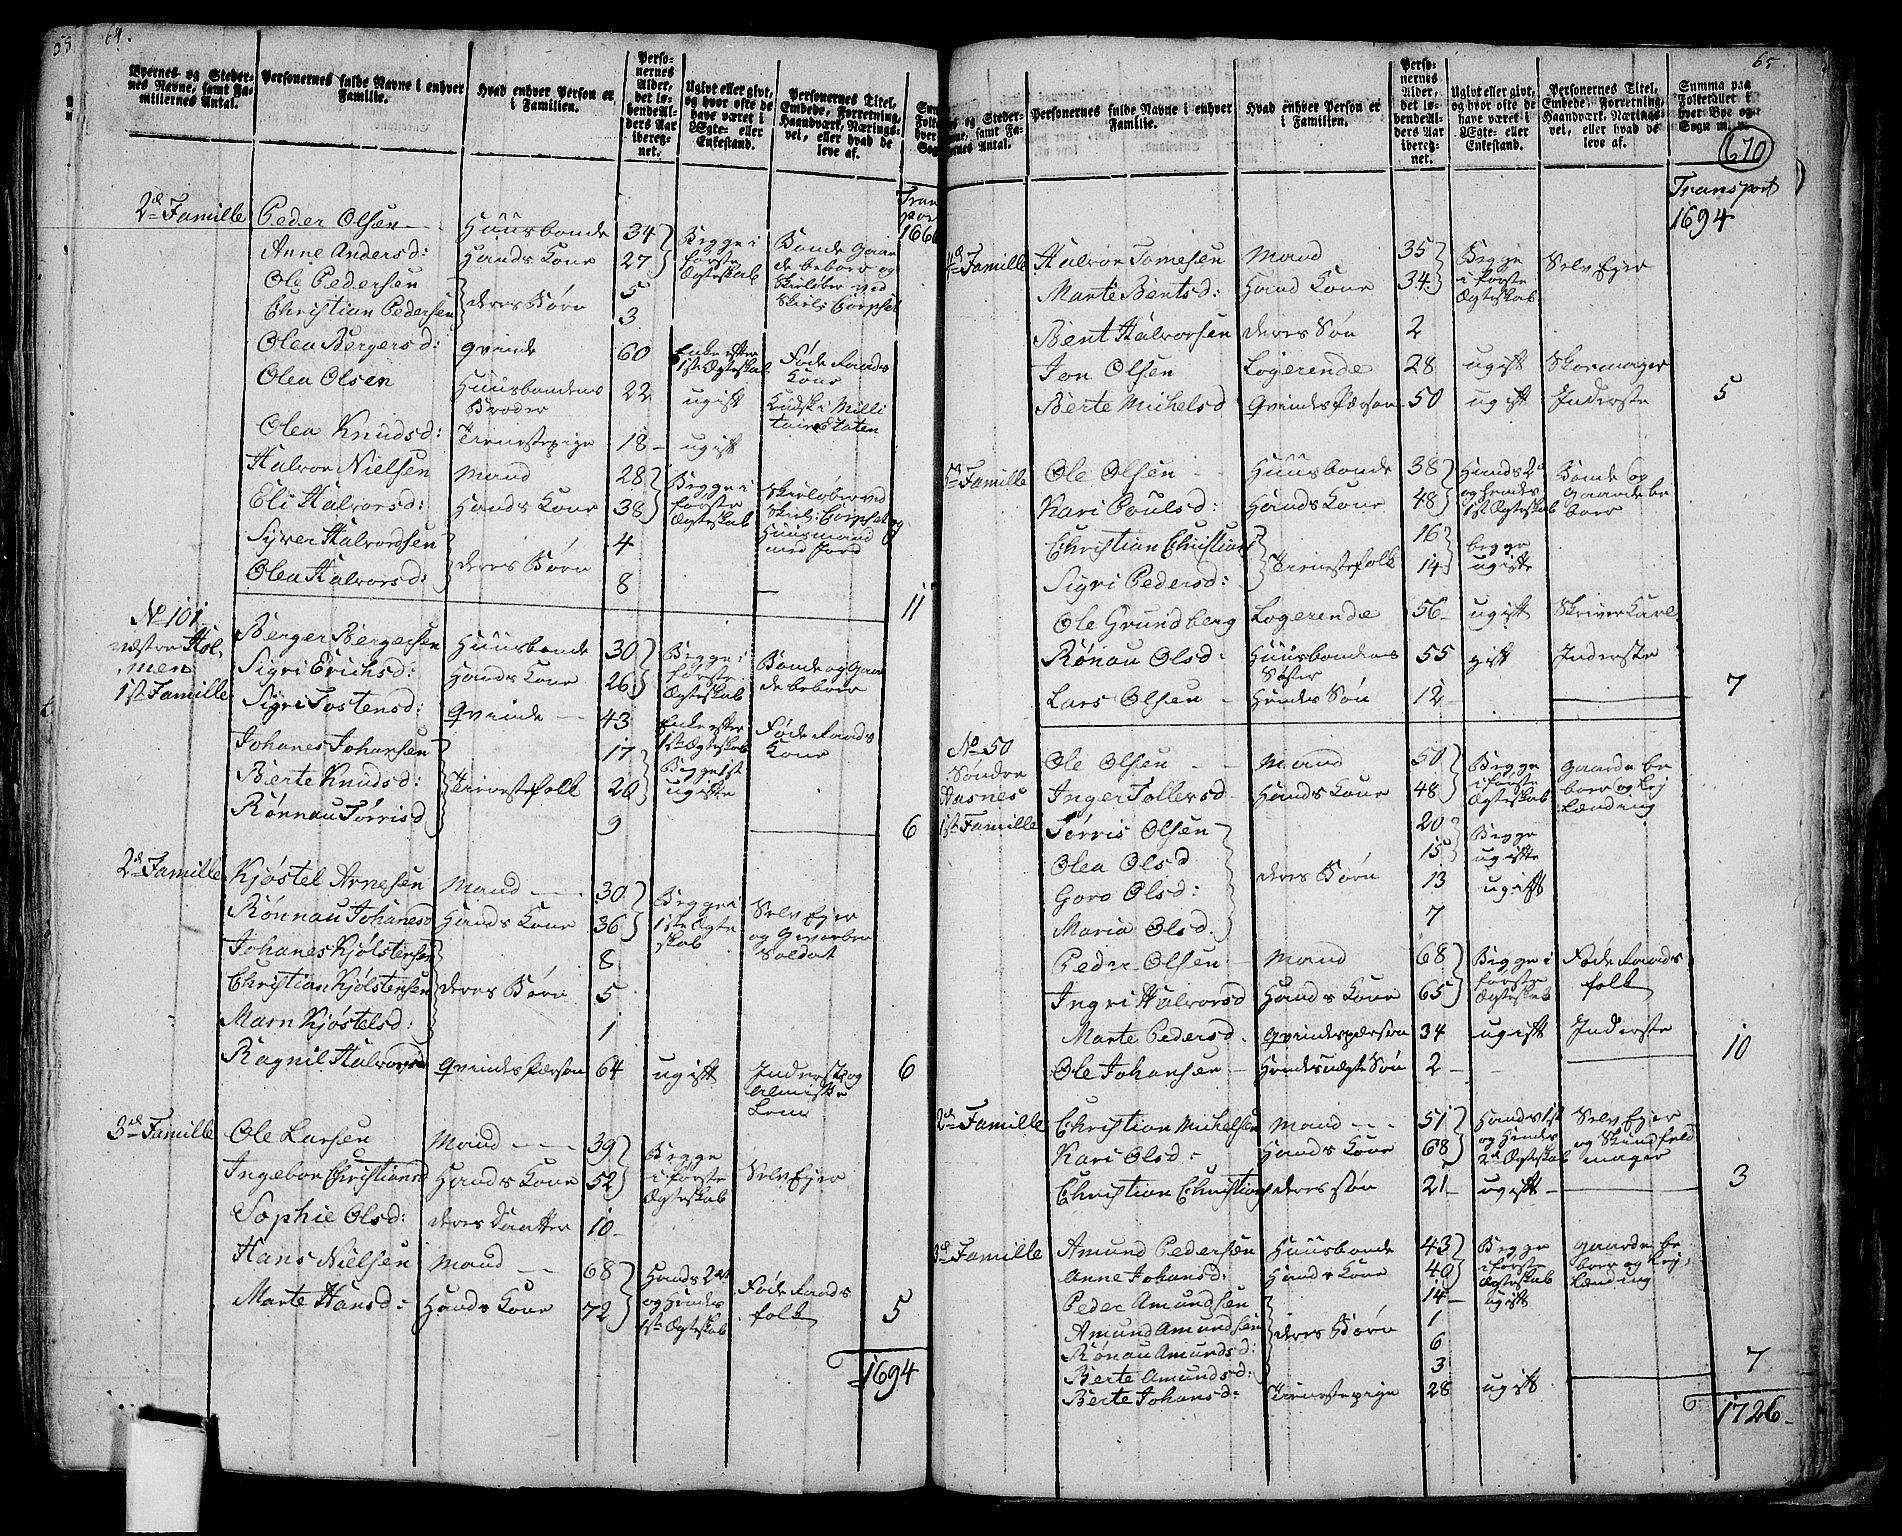 64.
Byernes- og Steder-
nes Navne, samt Fa-
miliernes Antal.
Personernes fulde Navne i enhver
Familie.
Hvad enhver Person er
i Familien.
Perso-
nernes
Alder,
det lø-
bende Al-
ders Aar
ibereg-
net.
Ugivt eller givt,
og hvor ofte de
have været i
Ægte- eller
Enkestand.
Personernes Titel,
Embede, Forretning,
Haandværk, Nærings-
vei, eller hvad de
leve af.
2d Familie Peder Olsen Huusbonde 34 Begge i første Ægteskab Bonde Gaar
de beboer og Skieløber ved Skiel: Corpset
Anne Andersd: Hands Kone 27
Ole Pedersen deres Børn 5
Christian Pedersen 3
Olea Bergersd: qvinde 60 Enke efter 1ste Ægteskab Føderaads Kone
Olea Olsen Huusbondens Broder 22 ugift Kudsk i Milli
taire Etaten
Olea Knudsd: Tienestepige 18 ugift
Halvor Nielsen Mand 28 Begge i første Ægteskab Skieløber ved Skiel: Corpset og Huusmand med Jord
Eli Halvorsd: Hands Kone 38
Syver Halvordsen deres Børn 4
Olea Halvorsd: 8
11
No 101
væstre Hol-
men
1st Familie
Berger Bergersen Huusbonde 30 Begge i første Ægteskab Bonde og Gaar
de beboer
Sigri Erichsd: Hands Kone 26
Sigri Tostensd: Qvinde 43 Enke efter 1ste Ægteskab Føde Raads Kone
Johanes Johansen Tienestefolk 17 Begge ugifte
Berte Knudsd: 20
Rønnau Tørrisd 9
6
2d Familie Kjøstel Arnesen Mand 30 Begge i 1ste Ægte
skab Selv Ejer og Gevorben Soldat
Rønnau Johanesd Hands Kone 36
Johanes Kjølstensen deres Børn 8
Christian Kjølstensen 5
Marn Kjøstelsd: 1
Ragnil Halvorsd Qvindes Person 64 ugift Inderst og Almisse Lem
6
3d Familie Ole Larsen Mand 39 Begge i første Ægteskab Selv Ejer
Ingebor Christiansd Hands Kone 52
Sophie Olsd: deres Datter 10
Hans Nielsen Mand 68 Hands 2det og Hendes 1ste Ægteskab Føde Raads folk
Marte Hansd: Hands Kone 72
5
1694
65.
Personernes fulde Navne i enhver
Familie.
Hvad enhver Person er
i Familien.
Perso-
nernes
Alder,
det lø-
bende Al-
ders Aar
ibereg-
net.
Ugivt eller givt,
og hvor ofte de
have været i
Ægte- eller
Enkestand.
Personernes Titel,
Embede, Forretning,
Haandværk, Nærings-
vei, eller hvad de
leve af.
Summa paa
Folketallet i
hver Bye og
Sogn m. v.
670
Transport
1694
4d Familie Halvor Tomesen Mand 35 Begge i første Ægteskab Selv Ejer
Marte Bentsd: Hand Kone 34
Bent Halvorsen deres Søn 2
Jon Olsen Logerende 28 ugift Skormager
Berte Michelsd Qvindes Person 50 ugift Inderste
5
5d Familie Ole Olsen Huusbonde 38 Hands 2d og Hendes 1ste Ægteskab Bonde og
Gaarde be
boer
Kari Poulsd: Hands Kone 48
Christian Christians Tienestefolk 16 begge ugifte
Sigri Pedersd: 14
Ole Grundberg Logerende 56 ugift Skriver Karl
Rønau Olsd: Huusbondens Søster 55 gift Inderste
Lars Olsen Hendes Søn 12
7
No 50
Søndre
Hasnes
1st Familie
Ole Olsen Mand 50 Begge i første Ægteskab Gaarde be
boer og Lej
lænding
Inger Tollevsd Hands Kone 48
Tørris Olsen deres Børn 20 Begge ugifte
Olea Olsd 15
Goro Olsd: 13 ugift
Maria Olsd. 7
Peder Olsen Mand 68 Begge i første Ægteskab Føde Raads folk
Ingri Halvorsd Hands Kone 65
Marte Pedersd. Qvindesperson 34 ugift Inderste
Ole Johansen Hendes uægte Søn 2
10
2d Familie Christian Michelsen Mand 51 Hands 1st og Hendes 2d Ægteskab Selv Ejer og Skindfeld mager
Kari Olsd: Hands Kone 68
Christian Christians deres søn 21 ugift
3
3d Familie Amund Pedersen Huusbonde 43 Begge i første Ægteskab Gaarde be
boer og Lej:
lænding
Anne Johansd: Hands Kone 40
Peder Amundsen deres Børn 14 ugift
Amund Amundsen 1
Rønau Amundsd: 6
Berte Amundsd: 3
Berte Johansd: Tienestepige 28 ugift
7
1726